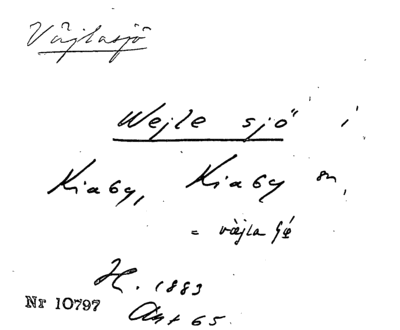 Väjlasjö
Wejle sjö i
Kiaby, Kiaby sn,
= väjla
H. 1883
Nr 10797
Ant 65.